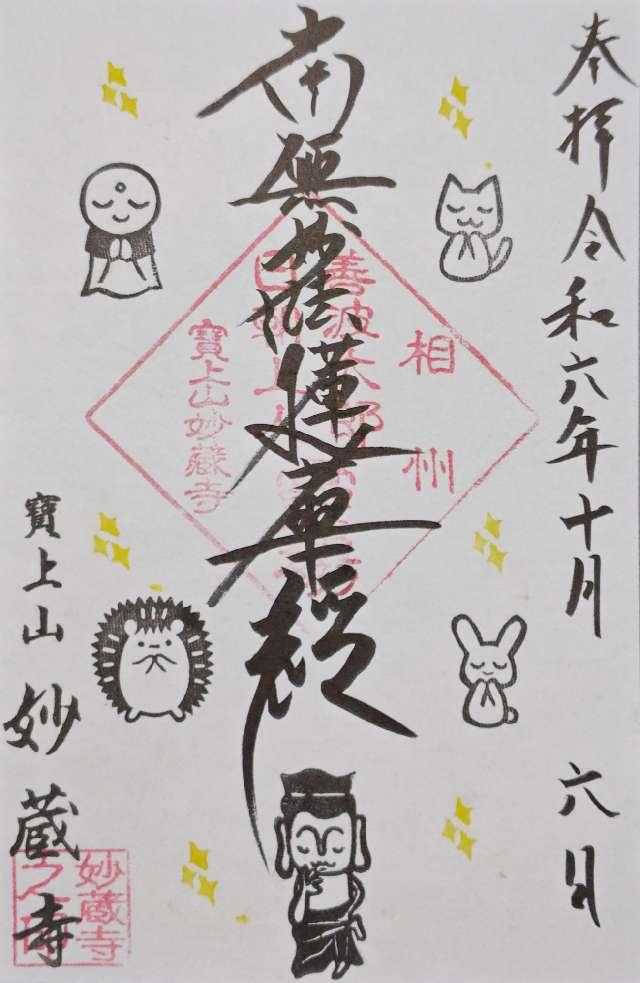 奉拝令和六年十月
六日
南無妙法蓮華経
相州
寶上山妙蔵寺
寶上山
妙蔵寺
妙蔵寺